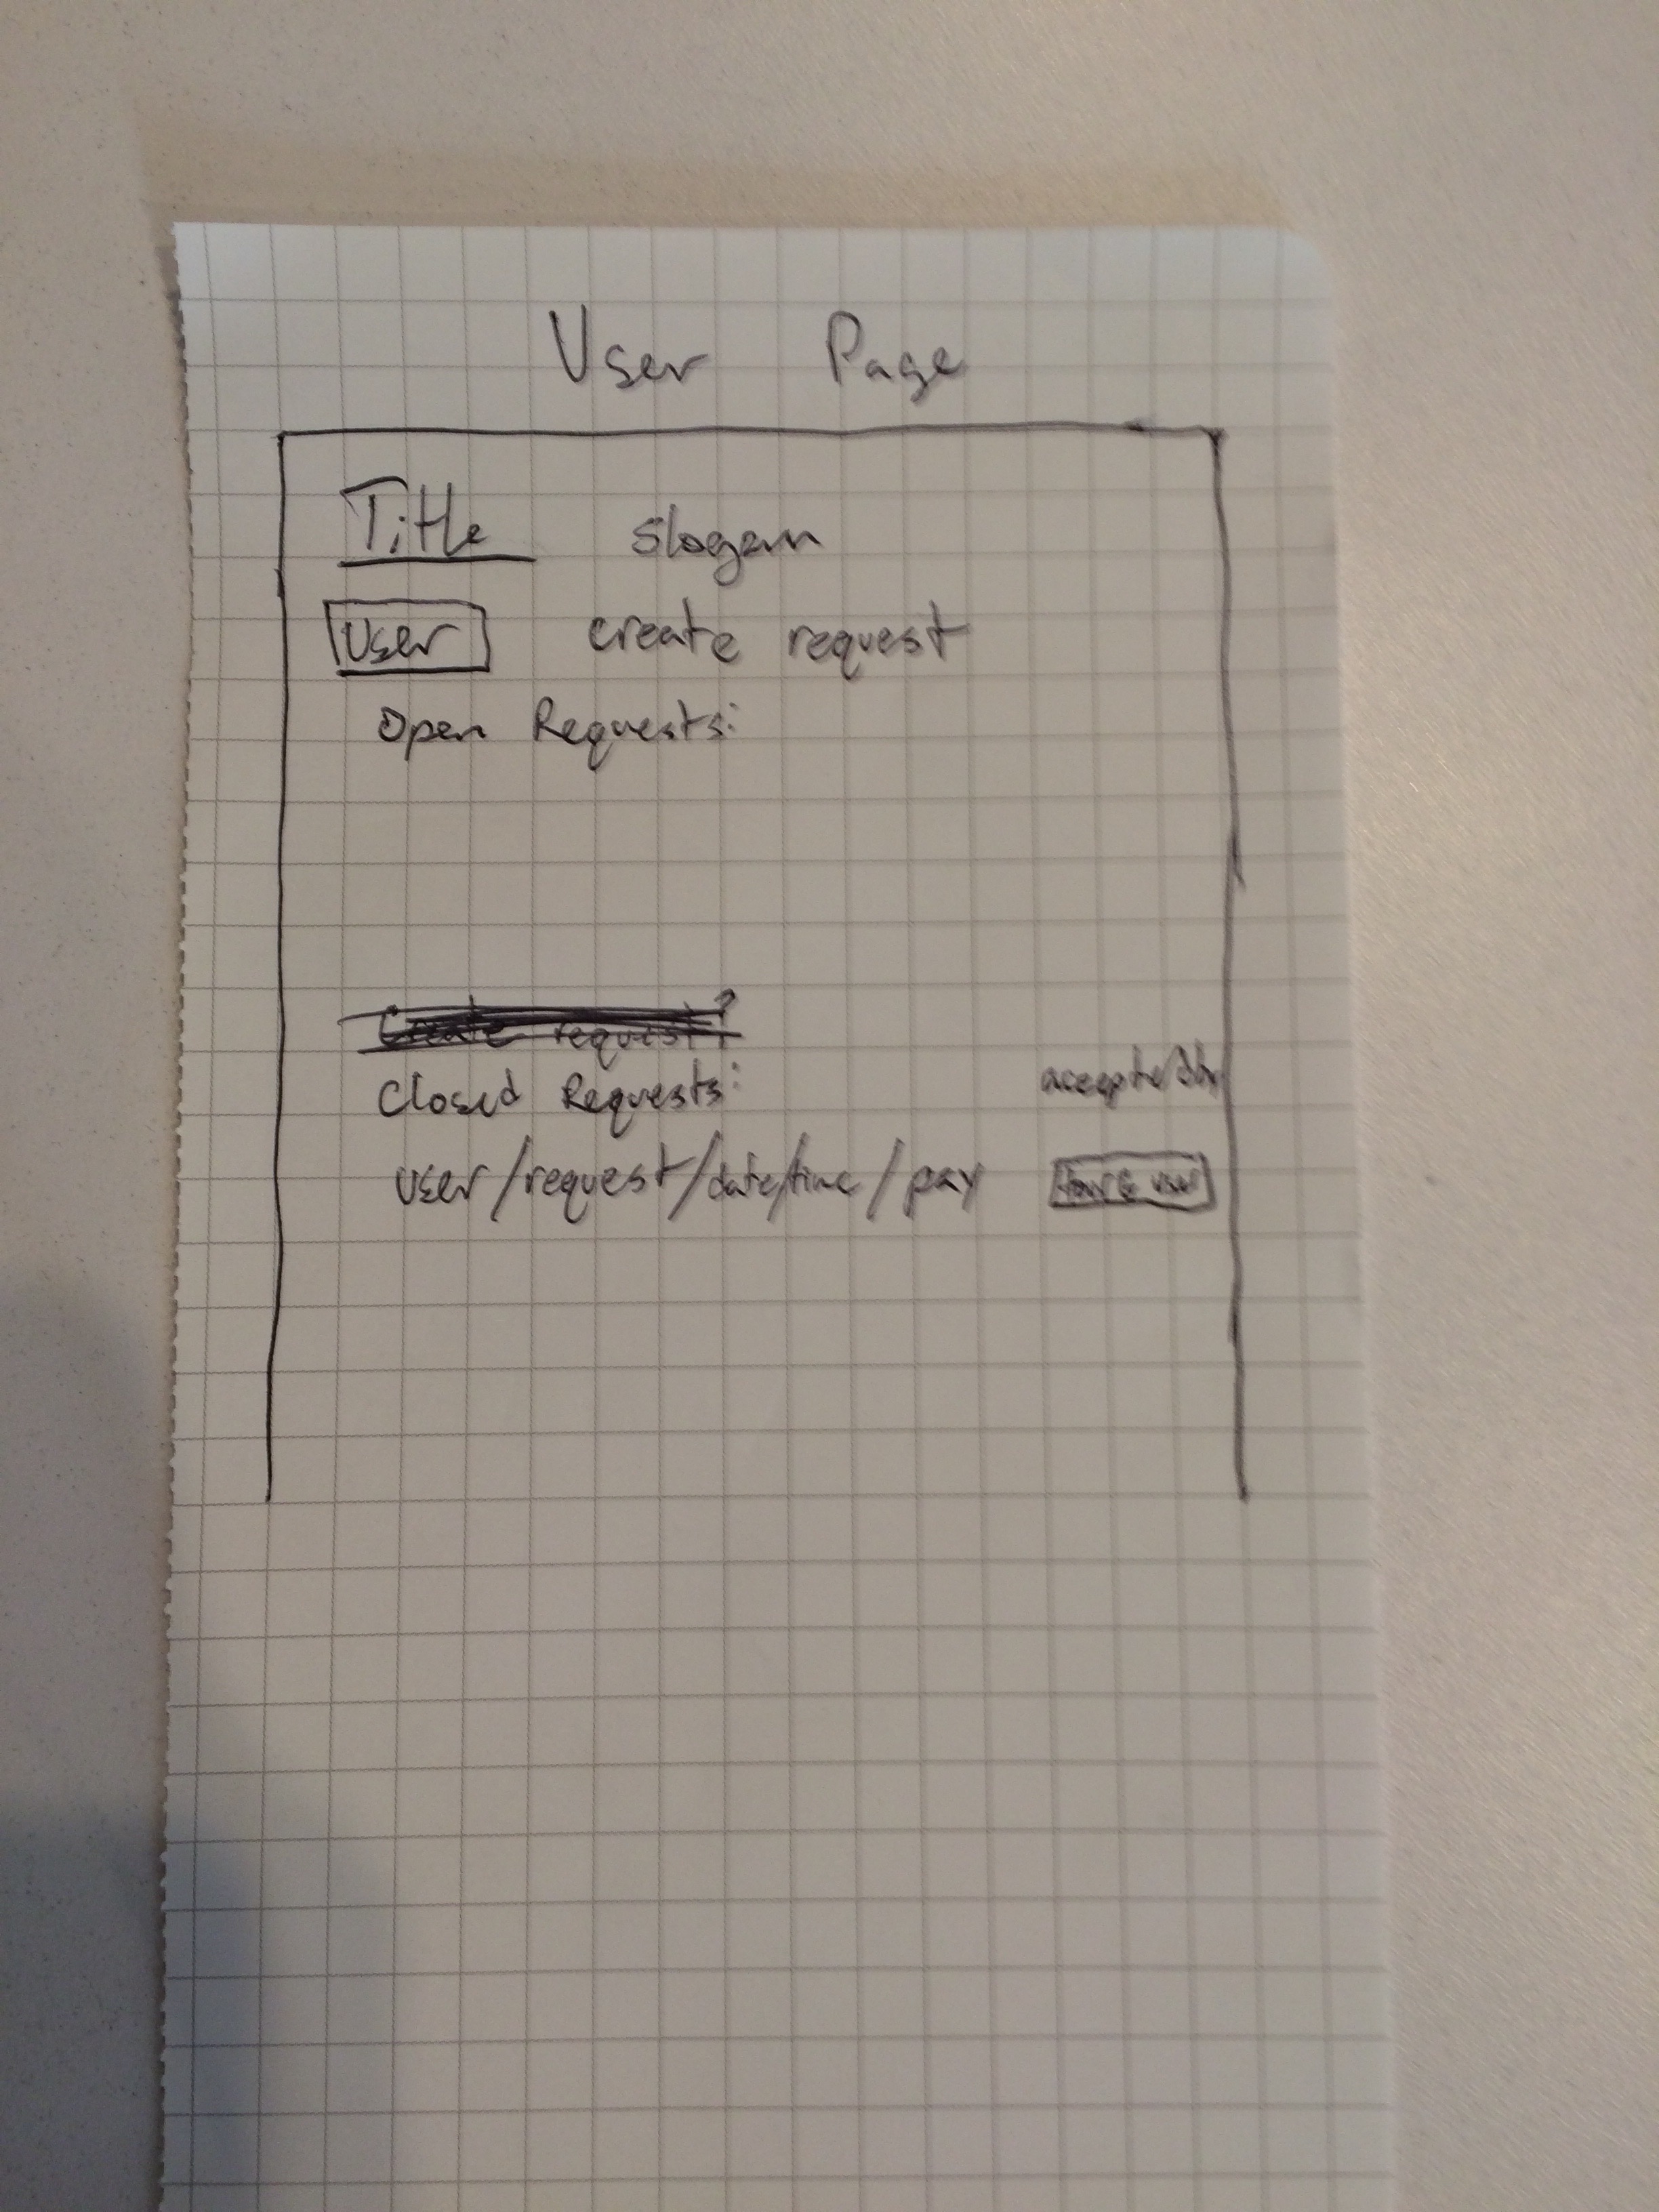 User Page
Title slogan
User create request
Open Requests:
Create request?
Closed Requests:
user/request/date/time/pay user